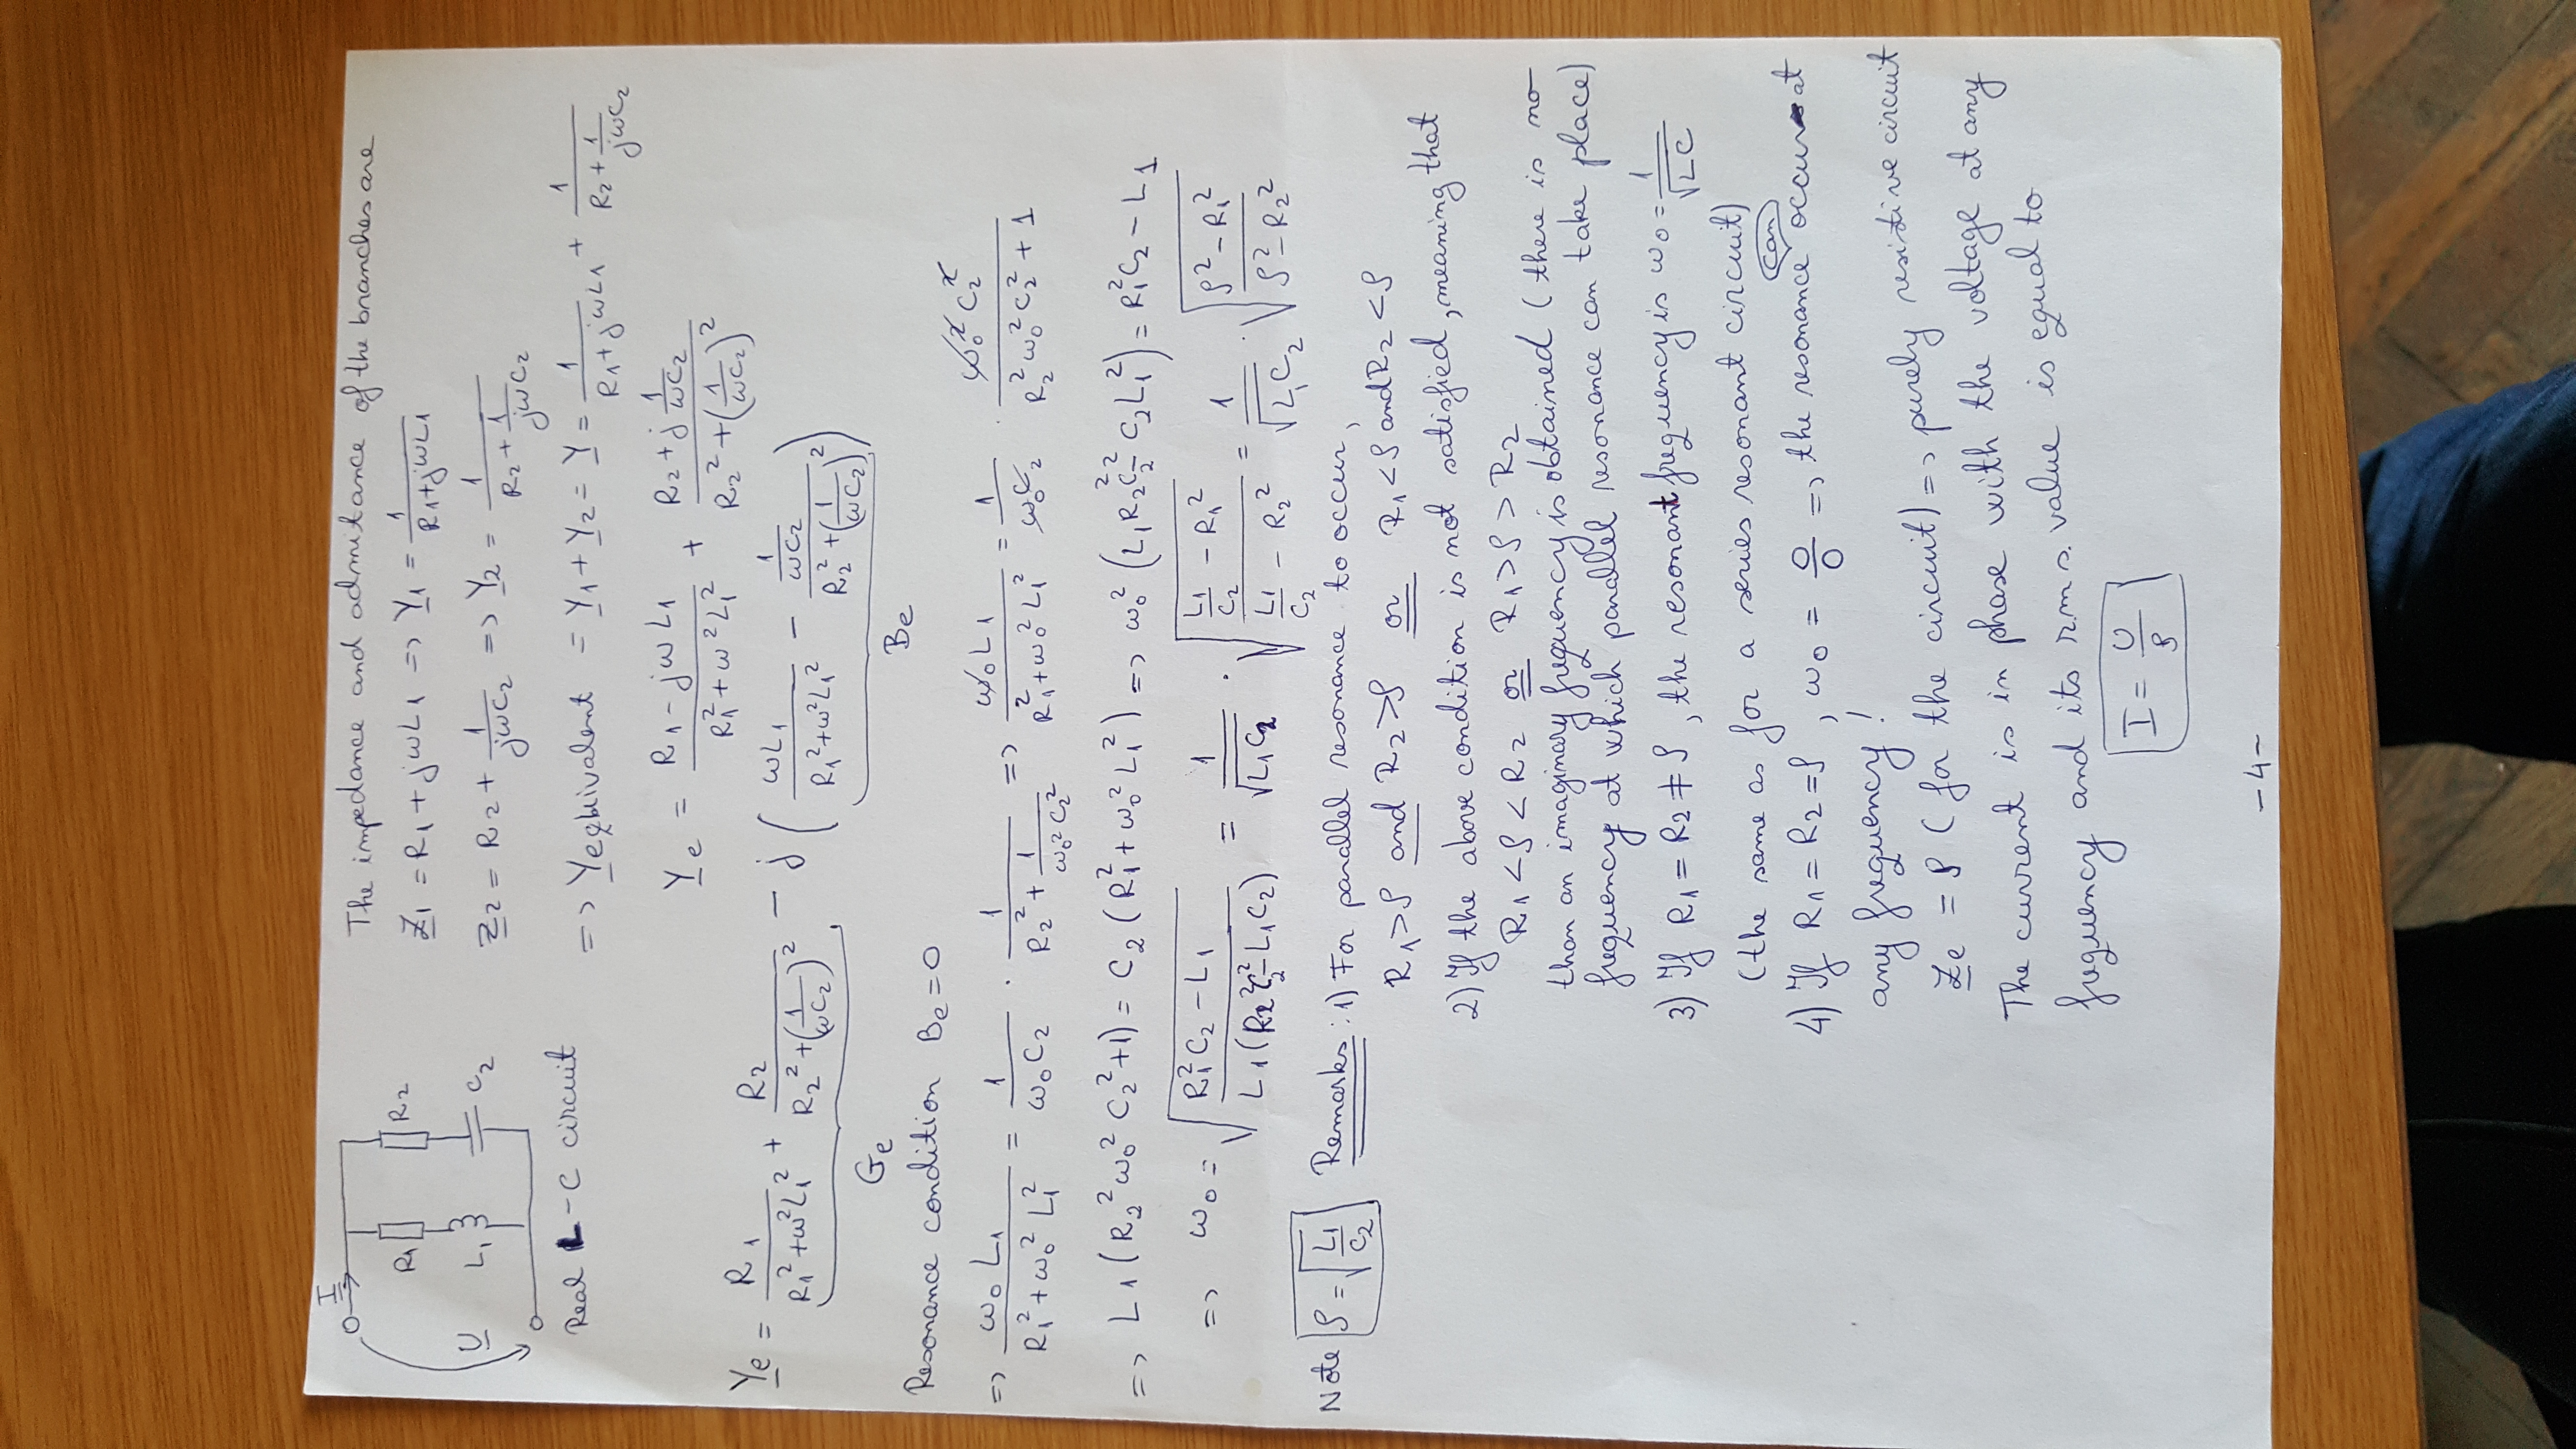 I
U
R1
L1
R2
C2
Real L-C circuit
The impedance and admitance of the branches are
Z1 = R1 + jωL1 => Y1 = 1/(R1+jωL1)
Z2 = R2 + 1/(jωC2) => Y2 = 1/(R2 + 1/(jωC2))
=> Yeqkivalent = Y1 + Y2 = Y = 1/(R1+jωL1) + 1/(R2 + 1/(jωC2))
Ye = (R1 - jωL1)/(R1² + ω²L1²) + (R2 + j 1/(ωC2))/(R2² + (1/(ωC2))²)
Ye = R1/(R1² + ω²L1²) + R2/(R2² + (1/(ωC2))²) - j(ωL1/(R1² + ω²L1²) - (1/(ωC2))/(R2² + (1/(ωC2))²))
Ge Be
Resonance condition Be = 0
=> ω0L1/(R1² + ω0²L1²) = 1/(ω0C2) · 1/(R2² + 1/(ω0²C2²)) => ω0L1/(R1² + ω0²L1²) = 1/(ω0C2) · ω0²C2²/(R2²ω0²C2² + 1)
=> L1(R2²ω0²C2² + 1) = C2(R1² + ω0²L1²) => ω0²(L1R2²C2² - C2L1²) = R1²C2 - L1
=> ω0 = √((R1²C2 - L1)/(L1(R2²C2² - L1C2))) = 1/√(L1C2) · √((L1/C2 - R1²)/(L1/C2 - R2²)) = 1/√(L1C2) · √((ρ² - R1²)/(ρ² - R2²))
Note ρ = √(L1/C2) Remarks: 1) For parallel resonance to occur,
R1 > ρ and R2 > ρ or R1 < ρ and R2 < ρ
2) If the above condition is not satisfied, meaning that
R1 < ρ < R2 or R1 > ρ > R2
than an imaginary frequency is obtained (there is no
frequency at which parallel resonance can take place)
3) If R1 = R2 ≠ ρ, the resonant frequency is ω0 = 1/√(LC)
(the same as for a series resonant circuit)
4) If R1 = R2 = ρ, ω0 = 0/0 => the resonance can occur at
any frequency!
Ze = ρ (for the circuit) => purely resistive circuit
The current is in phase with the voltage at any
frequency and its r.m.s. value is equal to
I = U/ρ
-4-